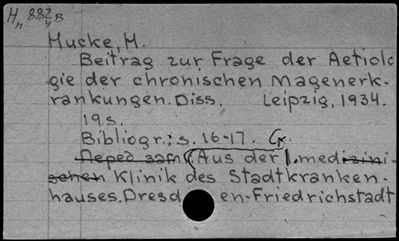 Hп 882/4 B
Mucke, M.
Beitrag zur Frage der Aetiolo
gie der chronischen Magenerk-
rankungen. Diss. Leipzig, 1934.
19 s.
Bibliogr.: s. 16-17.
Перед загл (Aus der I. medizini-
schen Klinik des Stadtkranken-
hauses. Dresden-Friedrichstadt